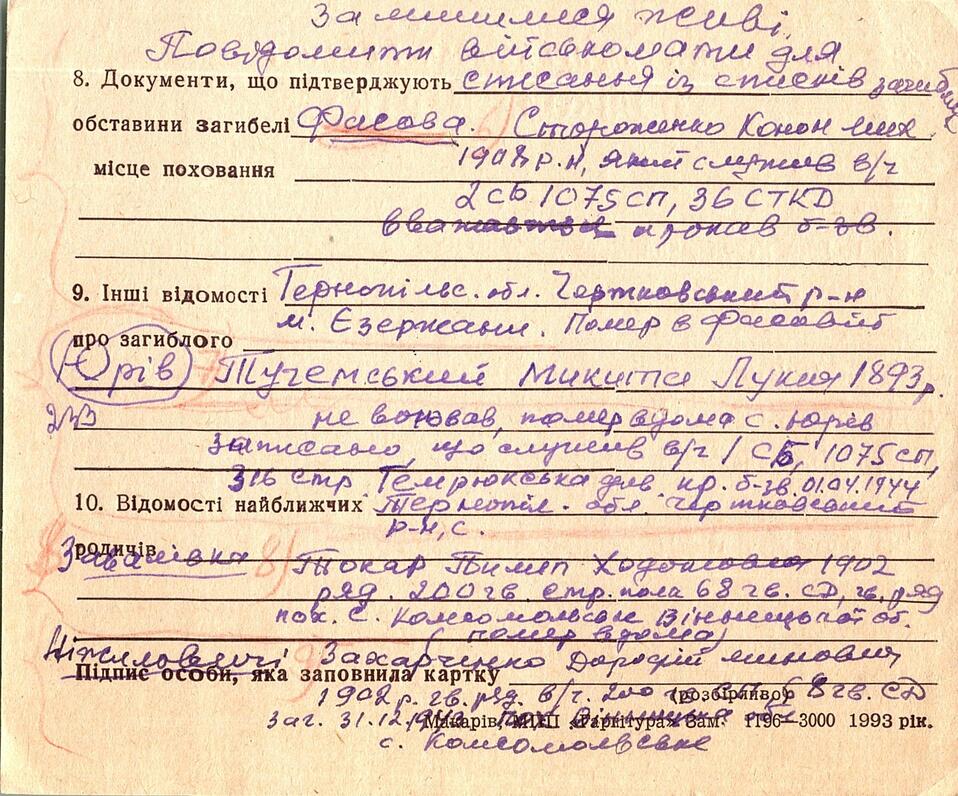 Залишися живі.
Повідомити військомати для
8. Документи, що підтверджують списання із списків загиблих
обставини загибелі Фасова. Стороженко Конон Мих
місце поховання 1908 р.н, який служив в/ч
2 СБ 1075 СП, 36 СТКД
вважається пропав б-зв.
9. Інші відомості Тернопільс. обл. Чортковський р-н
м. Єзержани. Помер в
про загиблого
Юрів Тучемський Микита Лукич 1893 р.
не воював, помер вдома с. Юрів
записано, що служив в/ч 1 СБ, 1075 СП,
316 стр Темрюкська див пр. б-зв. 01.04.1944
10. Відомості найближчих Тернопіл. обл. Чортковський
р-н, с.
родичів
Токар Пилип 1902
ряд. 200 гв. стр. полк 68 гв. СД, гв. ряд
пох. с. Комсомольськ Вінницької об.
(помер вдома)
Захарченко Дорофій Минович
Підпис особи, яка заповнила картку
1902 р. гв. ряд. в/ч. 200 68 гв. СД
(розбірливо)
заг. 31.12.
Макарів, МПП „Гарнітура" Зам. 1196—3000 1993 рік.
с. Комсомольське